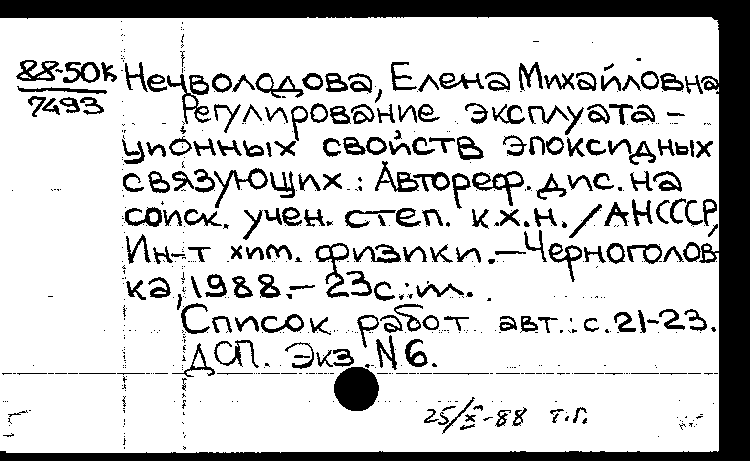 88-50к Нечволодова, Елена Михайловна
7493
Регулирование эксплуата-
ционных свойств эпоксидных
связующих : Автореф. дис. на
соиск. учен. степ. к.х.н. / АН СССР,
Ин-т хим. физики. — Черноголов-
ка, 1988. — 23 с. : ил.
Список работ авт.: с. 21-23.
ДСП. Экз. N 6.
25/X-88 т.г.